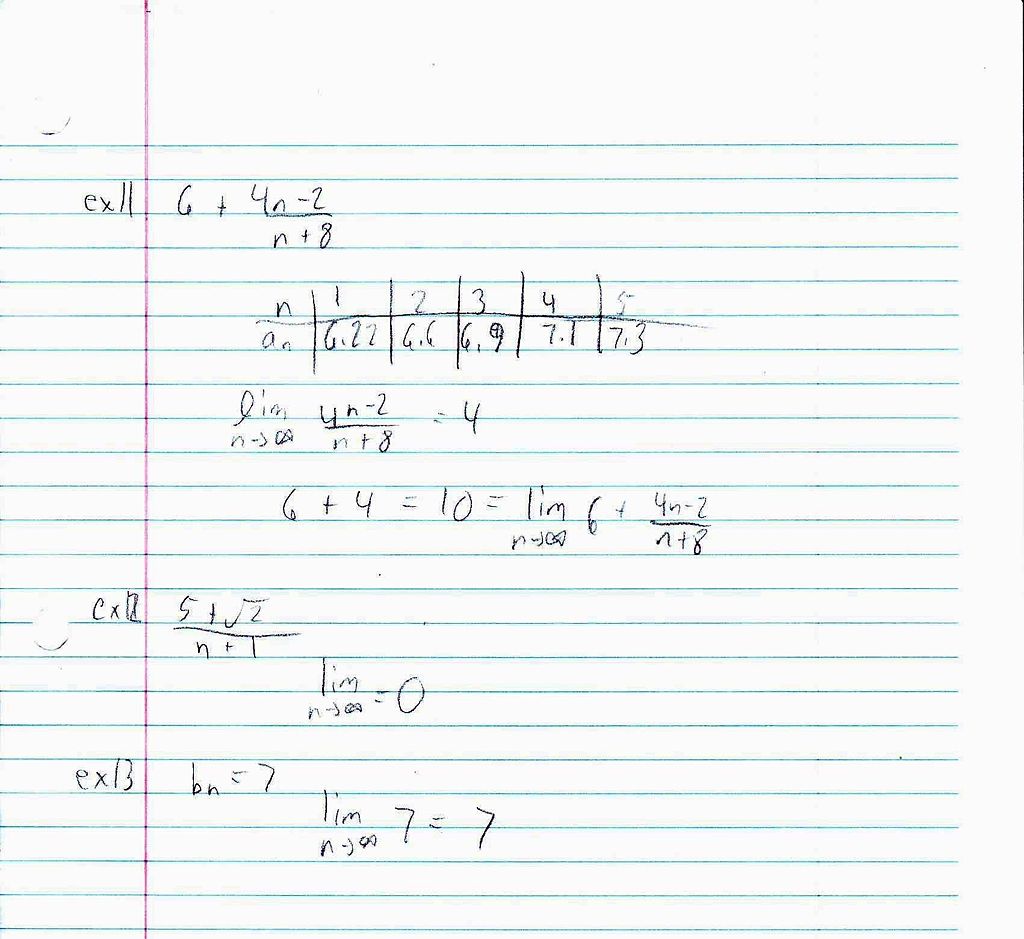 ex11 6 + 4n-2
n+8
n 1 2 3 4 5
an 6.22 6.6 6.9 7.1 7.3
lim 4n-2 = 4
n→∞ n+8
6 + 4 = 10 = lim 6 + 4n-2
n→∞ n+8
ex12 5+√2
n+1
lim = 0
n→∞
ex13 bn = 7
lim 7 = 7
n→∞